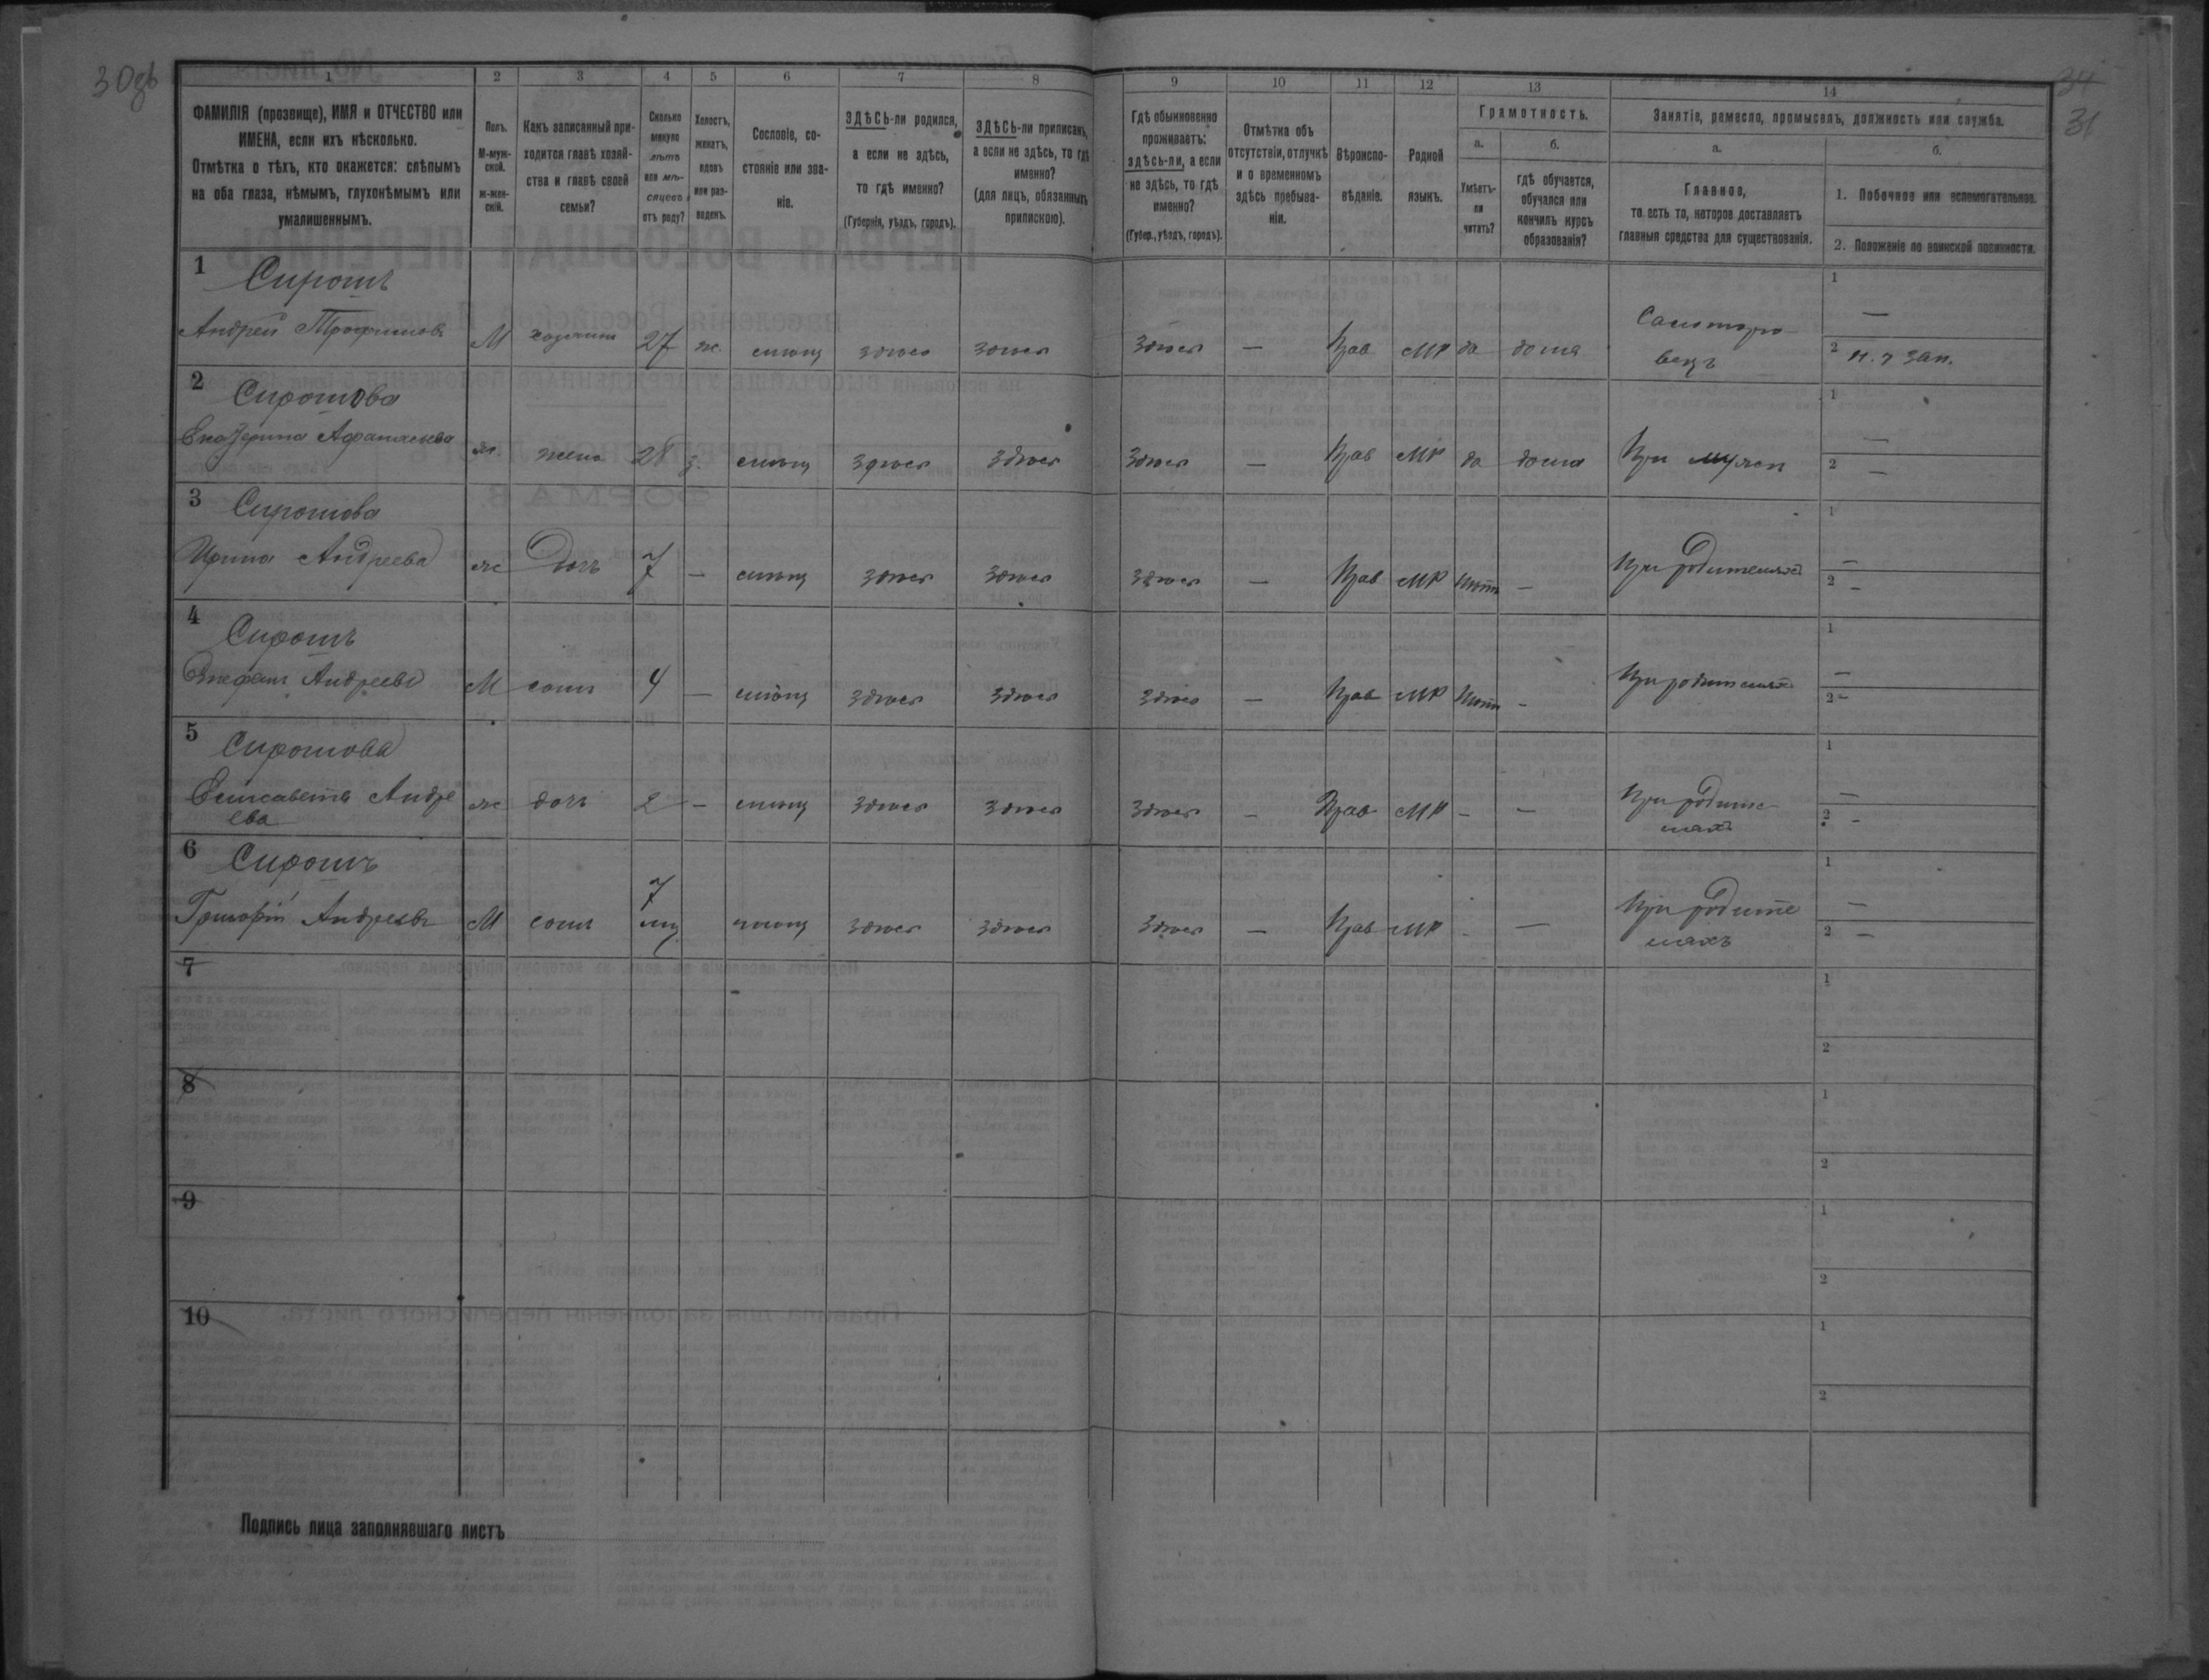 30об
34
31
1 2 3 4 5 6 7 8 9 10 11 12 13 14
ФАМИЛІЯ (прозвище), ИМЯ и ОТЧЕСТВО или
ИМЕНА, если ихъ нѣсколько.
Отмѣтка о тѣхъ, кто окажется: слѣпымъ
на оба глаза, нѣмымъ, глухонѣмымъ или
умалишеннымъ.
Полъ.
М-муж-
ской.
ж-жен-
скій.
Какъ записанный при-
ходится главѣ хозяй-
ства и главѣ своей
семьи?
Сколько
минуло
лѣтъ
или мѣ-
сяцевъ
отъ роду?
Холостъ,
женатъ,
вдовъ
или раз-
веденъ.
Сословіе, со-
стояніе или зва-
ніе.
ЗДѢСЬ-ли родился,
а если не здѣсь,
то гдѣ именно?
(Губернія, уѣздъ, городъ).
ЗДѢСЬ-ли приписанъ,
а если не здѣсь, то гдѣ
именно?
(для лицъ, обязанныхъ
припискою).
Гдѣ обыкновенно
проживаетъ:
здѣсь-ли, а если
не здѣсь, то гдѣ
именно?
(Губер., уѣздъ, городъ).
Отмѣтка объ
отсутствіи, отлучкѣ
и о временномъ
здѣсь пребыва-
ніи.
Вѣроиспо-
вѣданіе.
Родной
языкъ.
Грамотность.
а.
Умѣетъ-
ли
читать?
б.
гдѣ обучается,
обучался или
кончилъ курсъ
образованія?
Занятіе, ремесло, промыселъ, должность или служба.
а.
Главное,
то есть то, которое доставляетъ
главныя средства для существованія.
б.
1. Побочное или вспомогательное.
2. Положеніе по воинской повинности.
1 Сиротъ 1 —
Андрей Трофимовъ М хозяинъ 27 ж. здѣсь здѣсь здѣсь — Прав МР да дома
2
2 Сиротова 1 —
Екатерина Афанасьева ж. жена 28 з. здѣсь здѣсь здѣсь — Прав МР да дома При мужѣ 2 —
3 Сиротова 1 —
Ирина Андреева ж дочь 7 — здѣсь здѣсь здѣсь — Прав МР нѣтъ — При родителяхъ 2 —
4 Сиротъ 1 —
Андреевъ М сынъ 4 — здѣсь здѣсь здѣсь — Прав МР нѣтъ - При родителяхъ 2 —
5 Сиротова 1 —
Елисавета Андре ж дочь 2 — здѣсь здѣсь здѣсь - Прав МР - — При родите- 2 -
ева ляхъ
6 Сиротъ 1 —
Григорій Андреевъ М сынъ 7 здѣсь здѣсь здѣсь — Прав МР - — При родите 2 —
ляхъ
7 1
2
8 1
2
9 1
2
10 1
2
Подпись лица заполнявшаго листъ